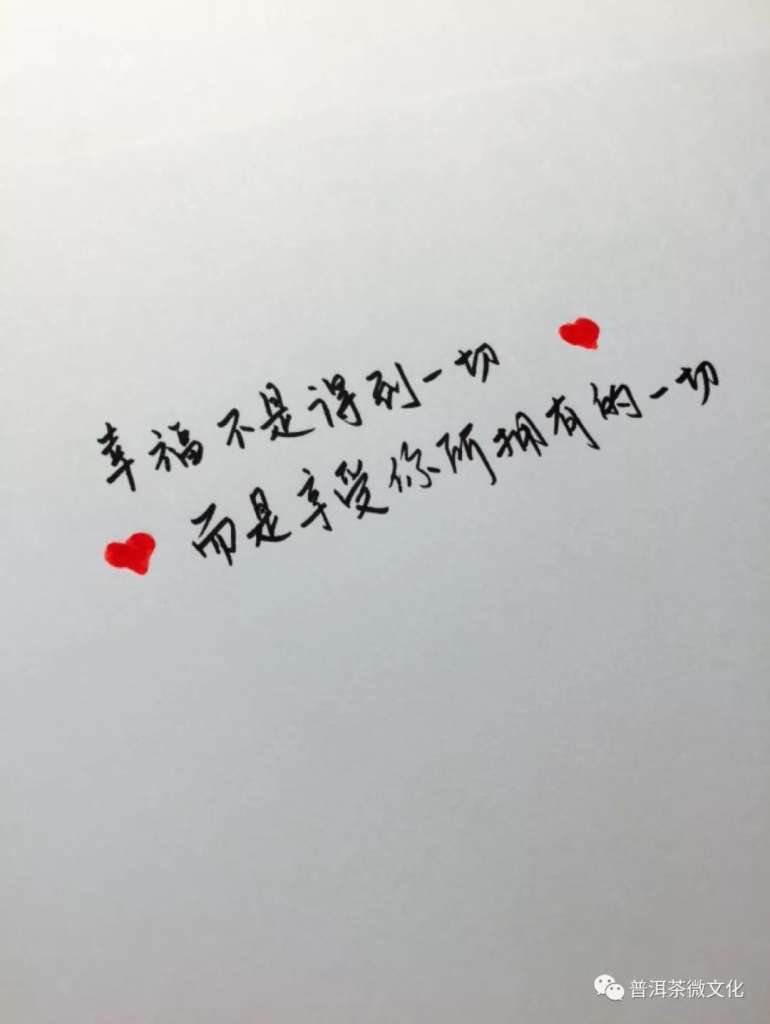 幸福不是得到一切
而是享受你所拥有的一切
普洱茶微文化